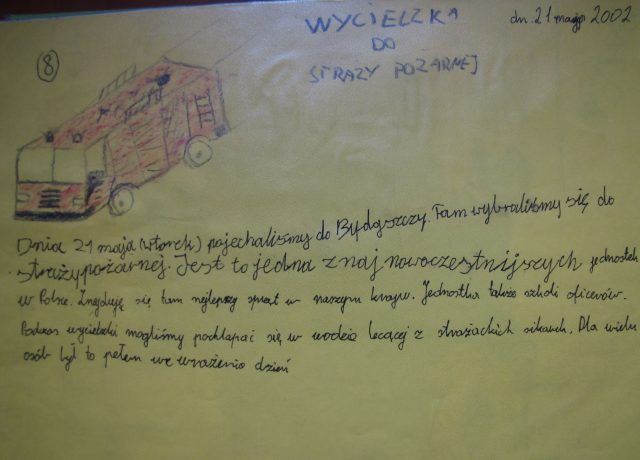 8
WYCIECZKA
DO
STRAŻY POŻARNEJ
dn. 21 maja 2002
Dnia 21 maja (wtorek) pojechaliśmy do Bydgoszczy. Tam wybraliśmy się do
straży pożarnej. Jest to jedna z naj nowocześniejszych jednostek
w Polsce. Znajduję się tam najlepszy sprzęt w naszym kraju. Jednostka także szkoli oficerów.
Podczas wycieczki mogliśmy pochlapać się w wodzie lecącej z strażackich sikawek. Dla wielu
osób był to pełem we wrażenia dzień